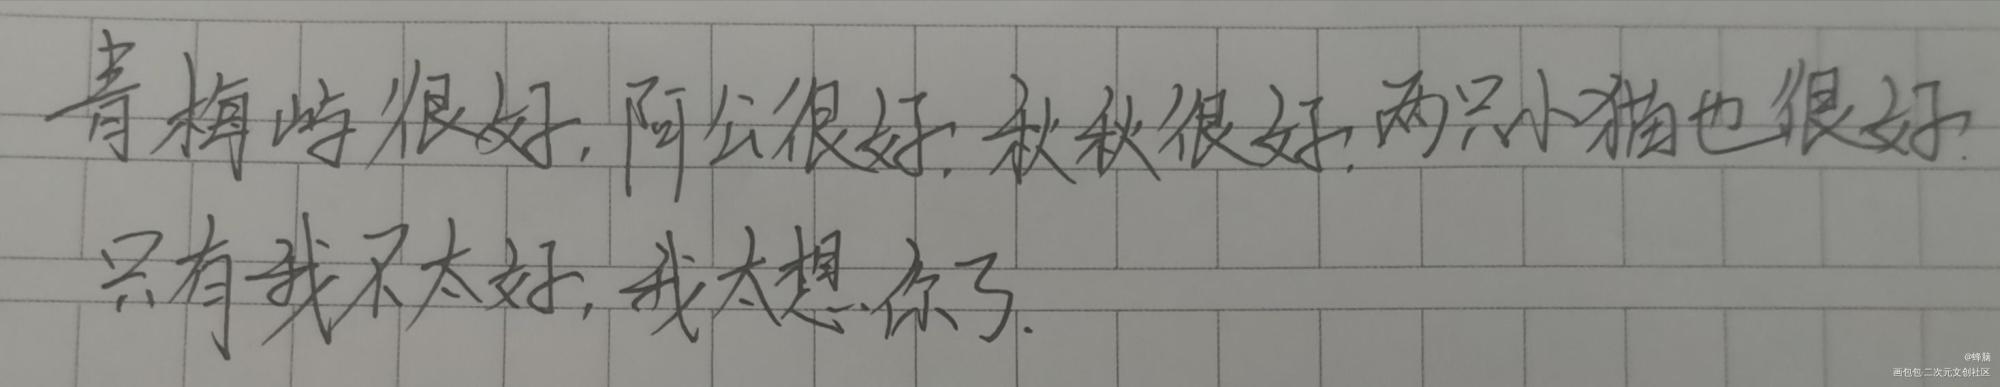 青梅屿很好.阿公很好.秋秋很好.两只小猫也很好.
只有我不太好,我太想你了.
@蜂脑
画包包·二次元文创社区